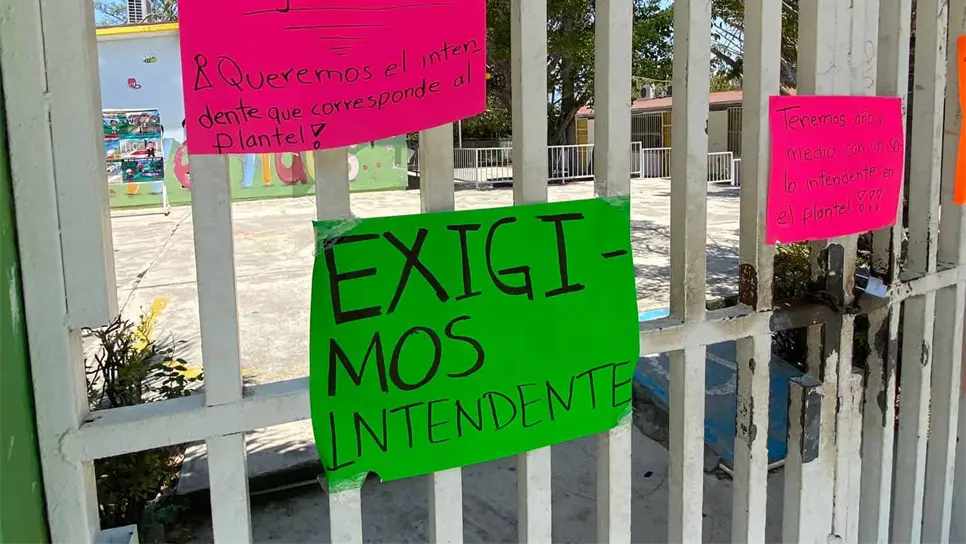 ¡Queremos el inten
dente que corresponde al
plantel!
EXIGI-
MOS
INTENDENTE
Tenemos año y
medio con un so-
lo intendente en
el plantel!!!